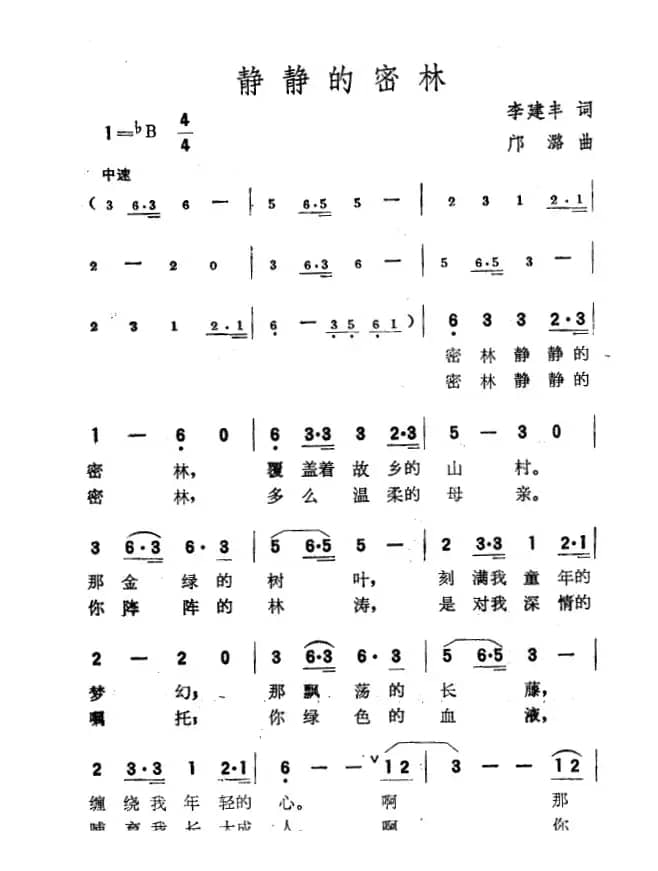 静静的密林
李建丰 词
1=♭B 4/4
邝潞 曲
中速
( 3 6·3 6 — | 5 6·5 5 — | 2 3 1 2·1 |
2 — 2 0 | 3 6·3 6 — | 5 6·5 3 — |
2 3 1 2·1 | 6 — 3 5 6 1 ) | 6 3 3 2·3 |
密林静静的
密林静静的
1 — 6 0 | 6 3·3 3 2·3 | 5 — 3 0 |
密林，覆盖着故乡的山村。
密林，多么温柔的母亲。
3 6·3 6·3 | 5 6·5 5 — | 2 3·3 1 2·1 |
那金绿的树叶，刻满我童年的
你阵阵的林涛，是对我深情的
2 — 2 0 | 3 6·3 6·3 | 5 6·5 3 — |
梦幻，那飘荡的长藤，
嘱托，你绿色的血液，
2 3·3 1 2·1 | 6 — — ∨ 1 2 | 3 — — 1 2 |
缠绕我年轻的心。啊那
哺育我长大成人。啊你